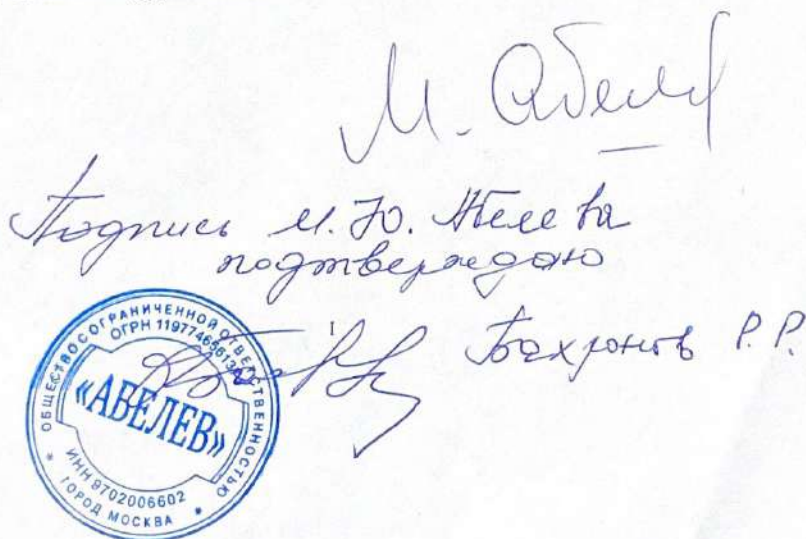 М. Абелев
Подпись М.Ю. Абелева
подтверждаю
Р.Р.
ОБЩЕСТВО С ОГРАНИЧЕННОЙ ОТВЕТСТВЕННОСТЬЮ
«АБЕЛЕВ»
ИНН 9702006602
* ГОРОД МОСКВА *